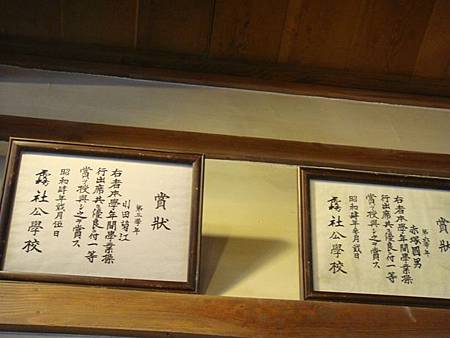 賞狀
第三學年
川田菊江
右者本學年間學業操
行出席共ニ優良ニ付一等
賞ヲ授與シ之ヲ賞ス
昭和肆年
霧社公學校
賞狀
第六學年
赤塚國男
右者本學年間學業操
行出席共ニ優良ニ付一等
賞ヲ授與シ之ヲ賞ス
昭和肆年
霧社公學校